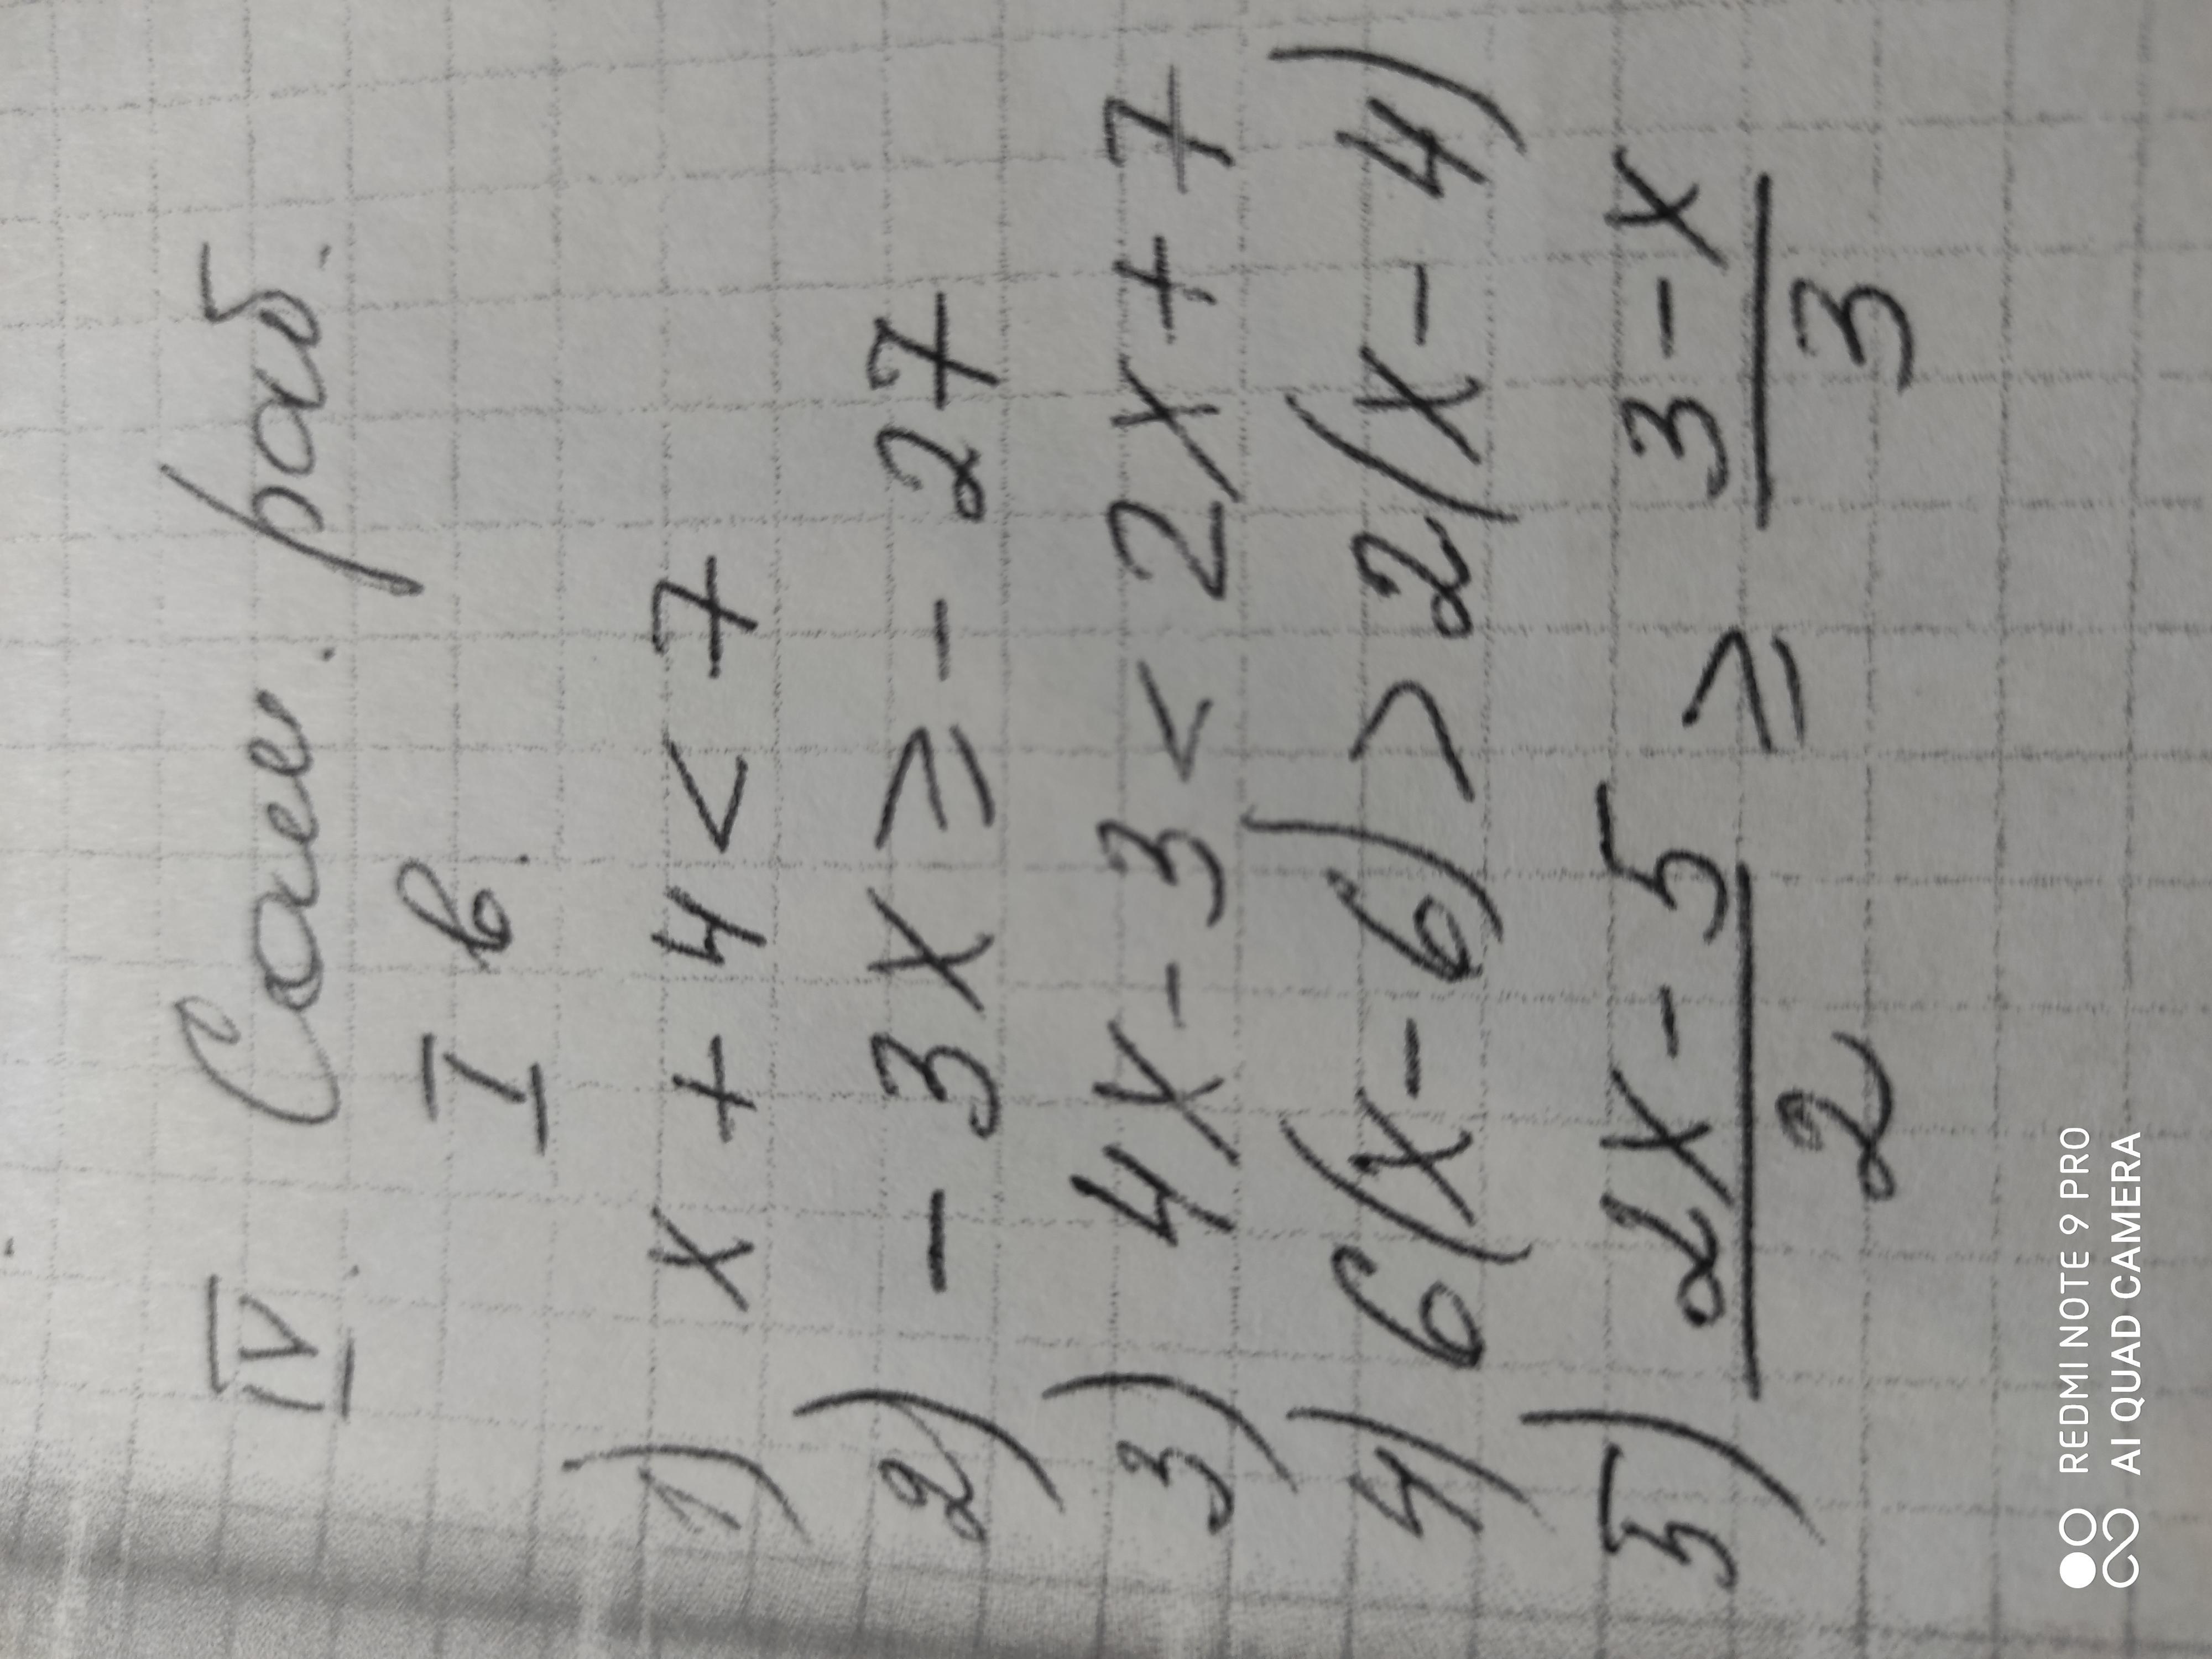 IV. Сам. раб.
I в.
1) x + 4 < 7
2) - 3x ≥ - 27
3) 4x - 3 < 2x + 7
4) 6(x - 6) > 2(x - 4)
5) (2x - 5)/2 ≥ (3 - x)/3
REDMI NOTE 9 PRO
AI QUAD CAMERA